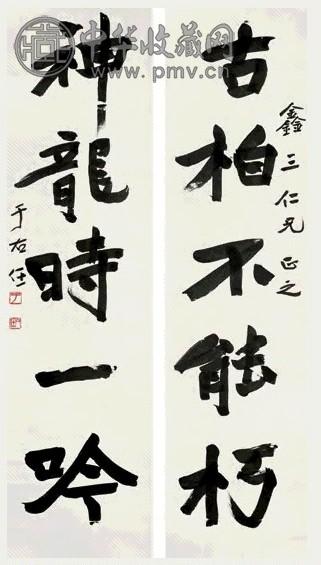 中华收藏网
www.pmv.cn
鑫三仁兄正之
古柏不能朽
神龍時一吟
于右任